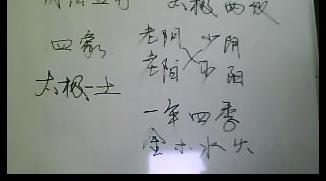 太极两仪
四象
老阴 少阴
老阳 少阳
太极-土
一年四季
金木水火